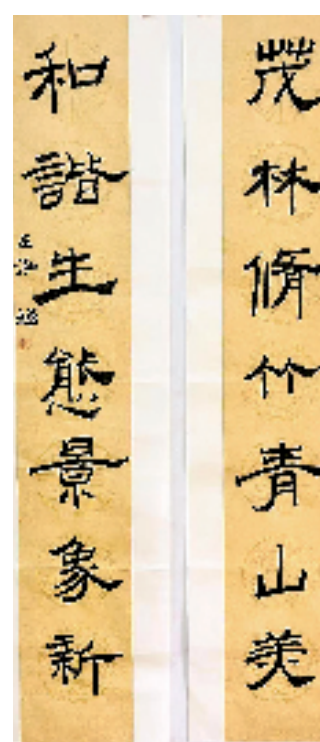 茂林脩竹青山美
和諧生態景象新